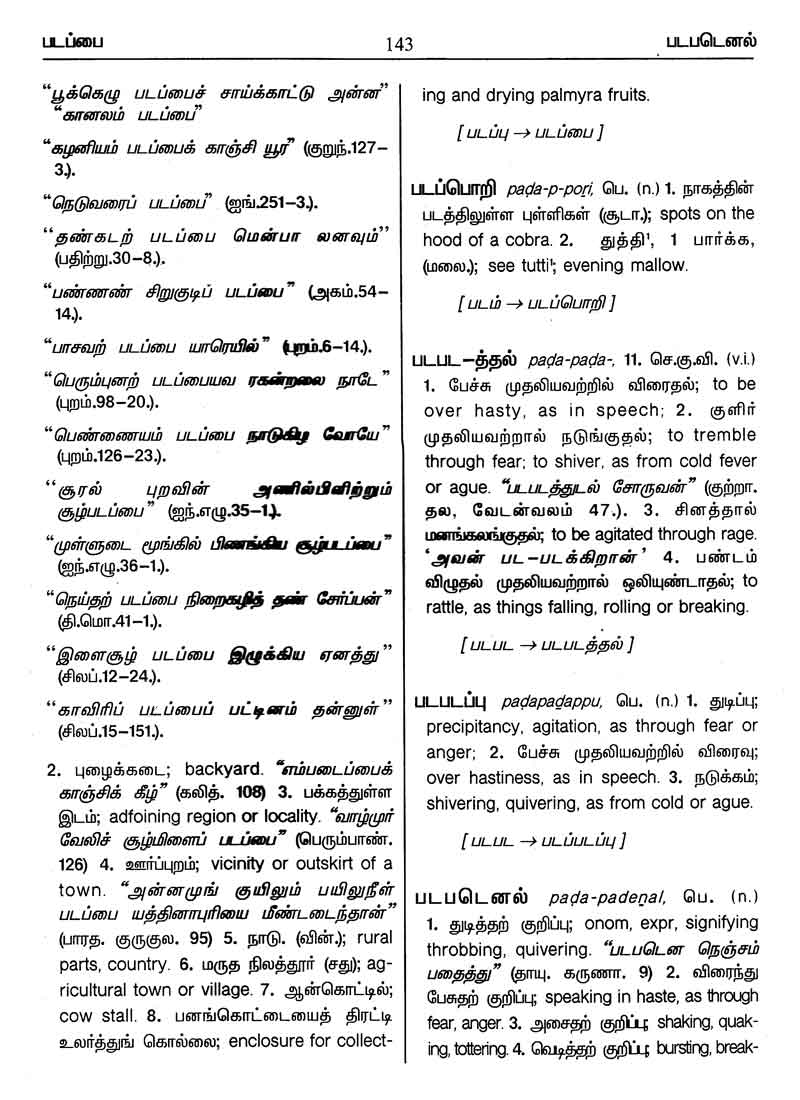 படப்பை 143 படபடெனல்
“பூக்கெழு படப்பைச் சாய்க்காட்டு அன்ன”
“கானலம் படப்பை”
“கழனியம் படப்பைக் காஞ்சி யூர” (குறுந்.127–
3.).
“நெடுவரைப் படப்பை” (ஐங்.251–3.).
“தண்கடற் படப்பை மென்பா லனவும்”
(பதிற்று.30–8.).
“பண்ணண் சிறுகுடிப் படப்பை” (அகம்.54–
14.).
“பாசவற் படப்பை யாரெயில்” (புறம்.6–14.).
“பெரும்புனற் படப்பையவ ரகன்றலை நாடே”
(புறம்.98–20.).
“பெண்ணையம் படப்பை நாடுகிழ வோயே”
(புறம்.126–23.).
“சூரல் புறவின் அணில்பிளிற்றும்
சூழ்படப்பை” (ஐந்.எழு.35–1.).
“முள்ளுடை மூங்கில் பிணங்கிய சூழ்படப்பை”
(ஐந்.எழு.36–1.).
“நெய்தற் படப்பை நிறைகழித் தண் சேர்ப்பன்”
(தி.மொ.41–1.).
“இளைசூழ் படப்பை இழுக்கிய ஏனத்து”
(சிலப்.12–24.).
“காவிரிப் படப்பைப் பட்டினம் தன்னுள்”
(சிலப்.15–151.).
2. புழைக்கடை; backyard. “எம்படைப்பைக்
காஞ்சிக் கீழ்” (கலித். 108) 3. பக்கத்துள்ள
இடம்; adfoining region or locality. “வாழ்முர்
வேலிச் சூழ்மிளைப் படப்பை” (பெரும்பாண்.
126) 4. ஊர்ப்புறம்; vicinity or outskirt of a
town. “அன்னமுங் குயிலும் பயிலுநீள்
படப்பை யத்தினாபுரியை மீண்டடைந்தான்”
(பாரத. குருகுல. 95) 5. நாடு. (வின்.); rural
parts, country. 6. மருத நிலத்தூர் (சது); ag-
ricultural town or village. 7. ஆன்கொட்டில்;
cow stall. 8. பனங்கொட்டையைத் திரட்டி
உலர்த்துங் கொல்லை; enclosure for collect-
ing and drying palmyra fruits.
[ படப்பு → படப்பை ]
படப்பொறி paḍa-p-poṟi, பெ. (n.) 1. நாகத்தின்
படத்திலுள்ள புள்ளிகள் (சூடா.); spots on the
hood of a cobra. 2. துத்தி¹, 1 பார்க்க,
(மலை.); see tutti¹; evening mallow.
[ படம் → படப்பொறி ]
படபட–த்தல் paḍa-paḍa-, 11. செ.கு.வி. (v.i.)
1. பேச்சு முதலியவற்றில் விரைதல்; to be
over hasty, as in speech; 2. குளிர்
முதலியவற்றால் நடுங்குதல்; to tremble
through fear; to shiver, as from cold fever
or ague. “படபடத்துடல் சோருவன்” (குற்றா.
தல, வேடன்வலம் 47.). 3. சினத்தால்
மனங்கலங்குதல்; to be agitated through rage.
‘அவன் பட–படக்கிறான்’ 4. பண்டம்
விழுதல் முதலியவற்றால் ஒலியுண்டாதல்; to
rattle, as things falling, rolling or breaking.
[ படபட → படபடத்தல் ]
படபடப்பு paḍapaḍappu, பெ. (n.) 1. துடிப்பு;
precipitancy, agitation, as through fear or
anger; 2. பேச்சு முதலியவற்றில் விரைவு;
over hastiness, as in speech. 3. நடுக்கம்;
shivering, quivering, as from cold or ague.
[ படபட → படப்படப்பு ]
படபடெனல் paḍa-paḍeṉal, பெ. (n.)
1. துடித்தற் குறிப்பு; onom, expr, signifying
throbbing, quivering. “படபடென நெஞ்சம்
பதைத்து” (தாயு. கருணா. 9) 2. விரைந்து
பேசுதற் குறிப்பு; speaking in haste, as through
fear, anger. 3. அசைதற் குறிப்பு; shaking, quak-
ing, tottering. 4. வெடித்தற் குறிப்பு; bursting, break-